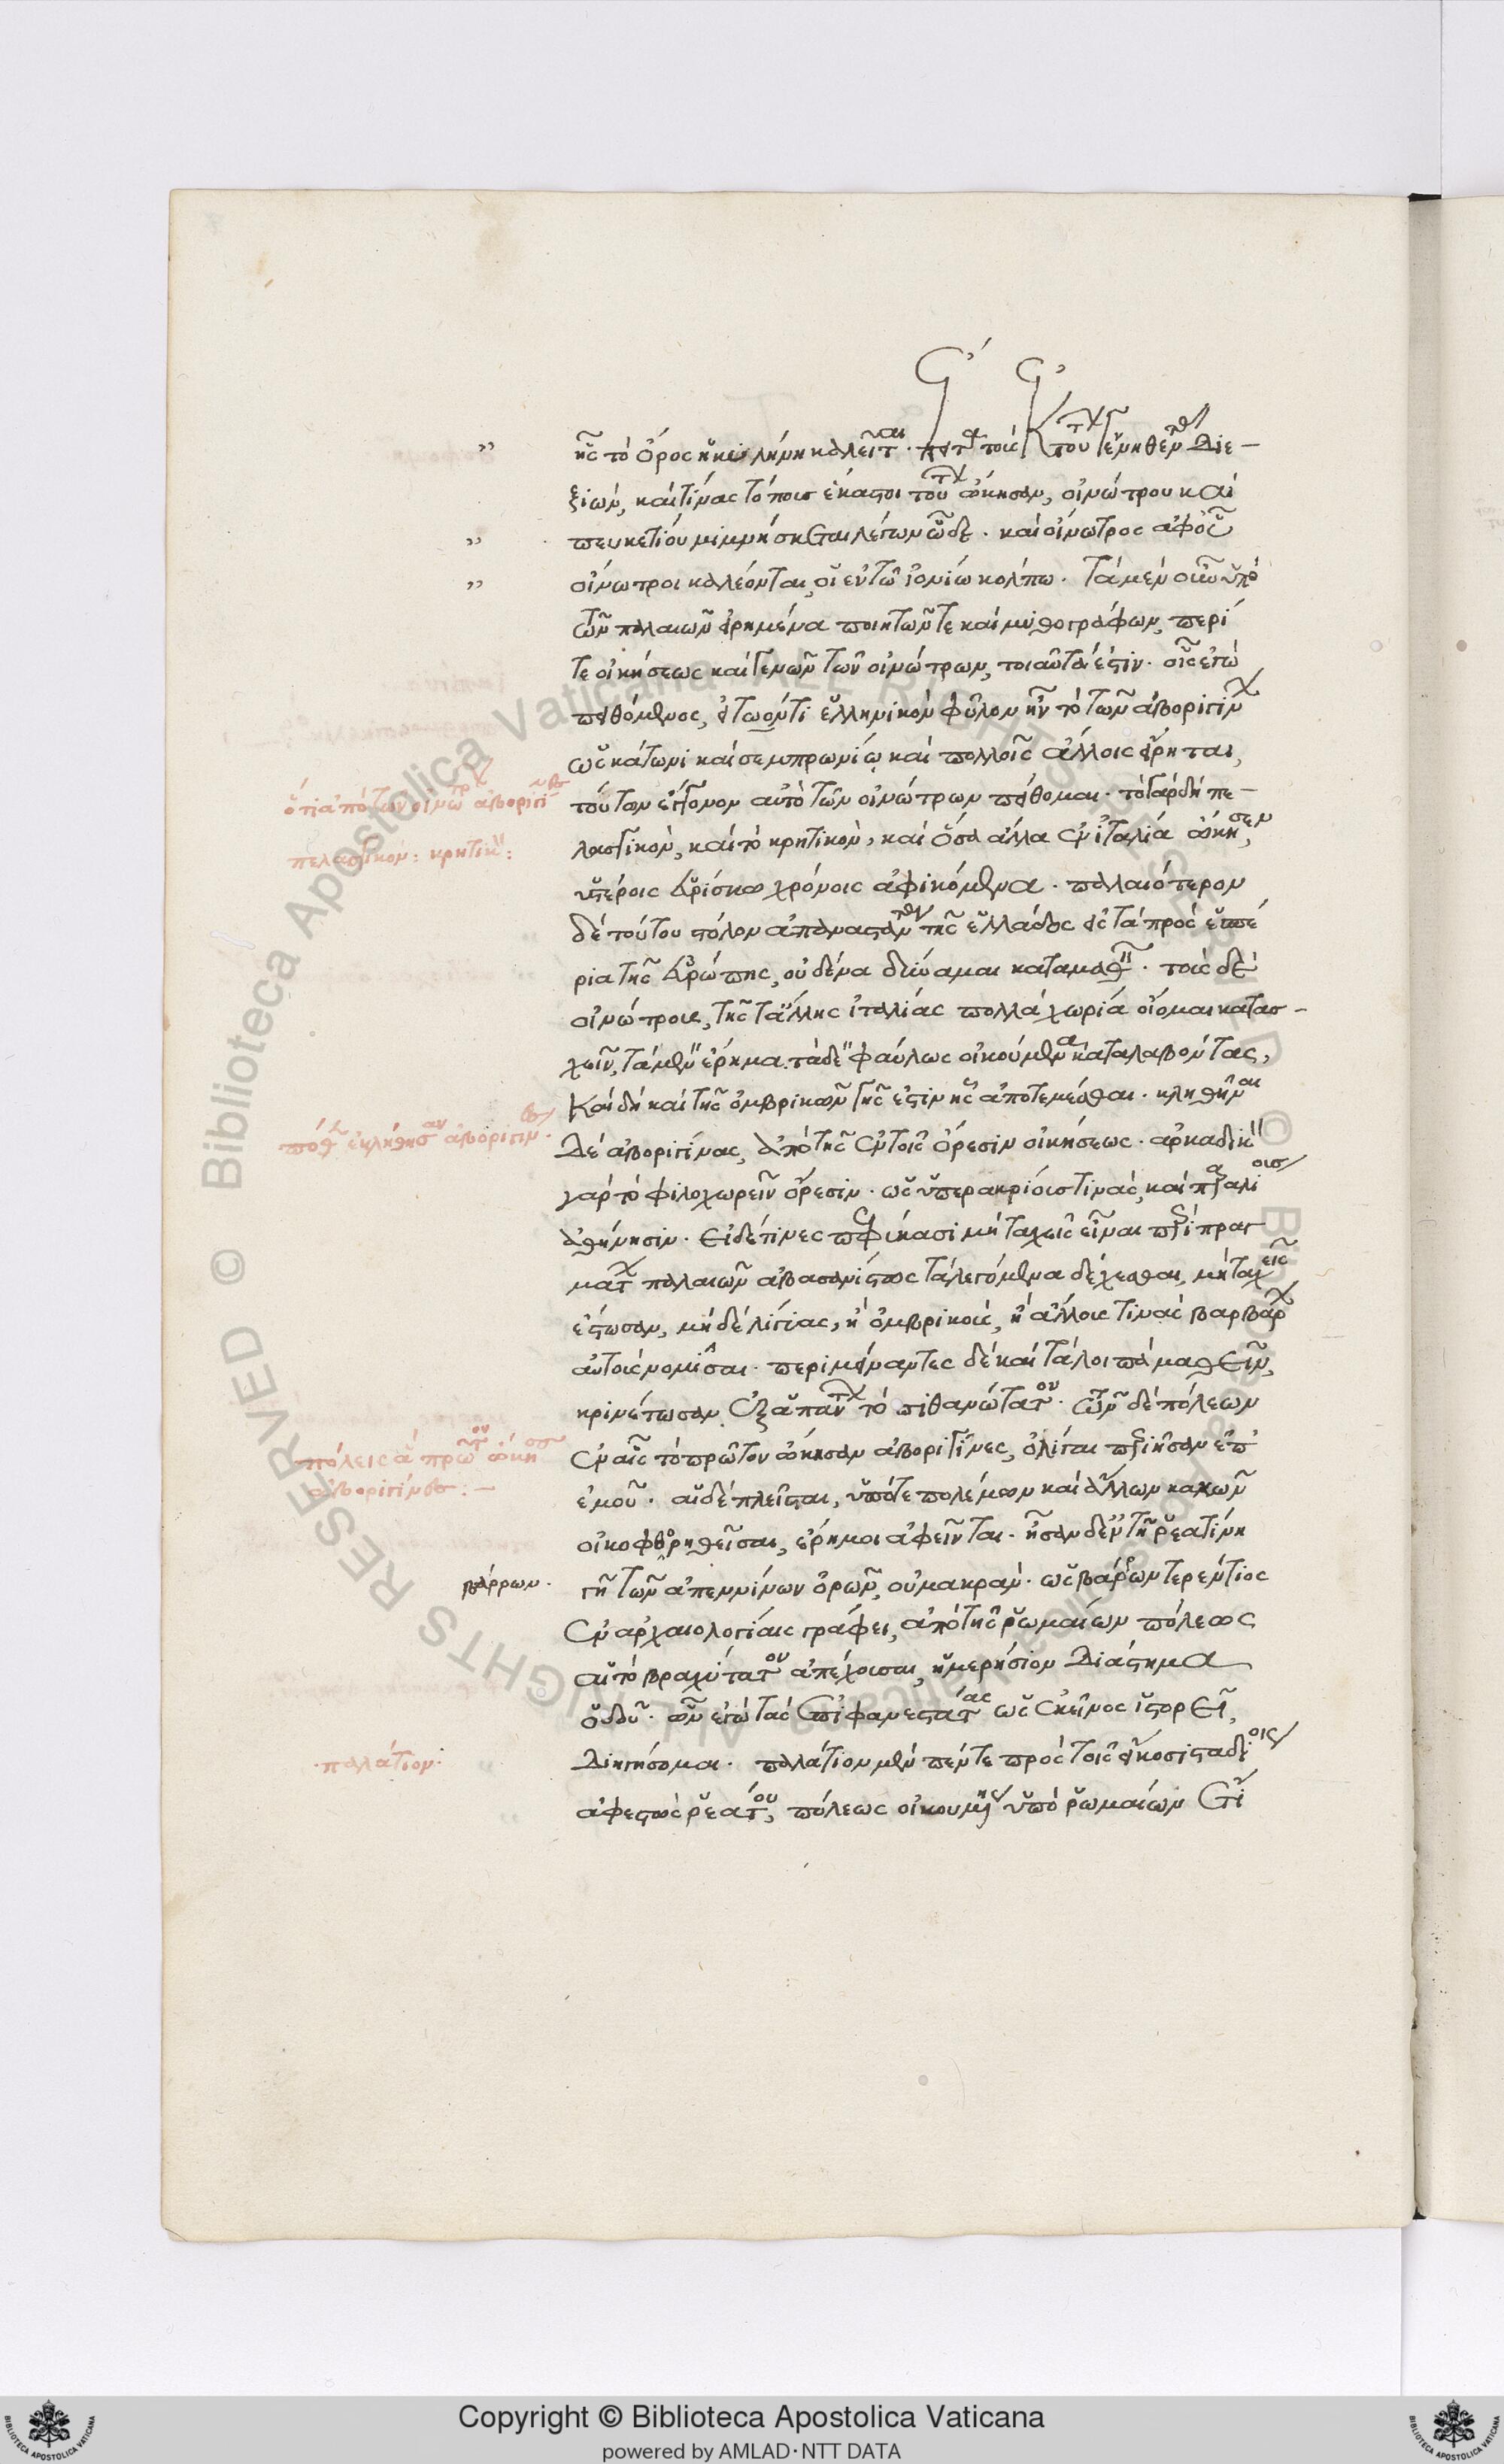 ἧς τὸ ὄρος ἡ κυλλήνη καλεῖται. ἔπειτα τοὺς ἐκ τούτων γεννηθέντας διε-
ξιών, καὶ τίνας τόπους ἕκαστοι τούτων ὤκησαν, οἰνώτρου καὶ
πευκετίου μιμνήσκεται λέγων ὧδε. καὶ οἴνωτρος ἀφ' οὗ
οἴνωτροι καλέονται, οἱ ἐν τῶ ἰονίω κόλπω. τὰ μὲν οὖν ὑπὸ
τῶν παλαιῶν εἰρημένα ποιητῶν τε καὶ μυθογράφων, περί
τε οἰκήσεως καὶ γένους τῶν οἰνώτρων, τοιαῦτά ἐστιν. οἷς ἐγὼ
πειθόμενος, εἰ τῶ ὄντι ἑλληνικὸν φῦλον ἦν τὸ τῶν ἀβοριγίνων
ὡς κάτωνι καὶ σεμπρωνίω καὶ πολλοῖς ἄλλοις εἴρηται,
τούτων ἔγγονον αὐτὸ τῶν οἰνώτρων πείθομαι. τὸ γὰρ δὴ πε-
λασγικὸν, καὶ τὸ κρητικὸν, καὶ ὅσα ἄλλα ἐν ἰταλία ὤκησεν,
ὑστέροις εὑρίσκω χρόνοις ἀφικόμενα. παλαιότερον
δὲ τούτου στόλον ἀπαναστάντα τῆς ἑλλάδος εἰς τὰ πρὸς ἑσπέ
ρια τῆς εὐρώπης, οὐδένα δύναμαι καταμαθεῖν. τοὺς δὲ
οἰνώτρους, τῆς τἄλλης ἰταλίας πολλὰ χωρία οἴομαι κατασ-
χεῖν, τὰ μὲν ἔρημα. τὰ δὲ φαύλως οἰκούμενα καταλαβόντας,
καὶ δὴ καὶ τῆς ὀμβρικῶν γῆς ἔστιν ἣν ἀποτεμέσθαι. κληθῆναι
δὲ ἀβοριγίνας, ἀπὸ τῆς ἐν τοῖς ὄρεσιν οἰκήσεως. ἀρκαδικὸν
γὰρ τὸ φιλοχωρεῖν ὄρεσιν. ὡς ὑπερακρίους τινὰς, καὶ παραλίους
ἀθήνησιν. εἰ δέ τινες πεφύκασι μὴ ταχεῖς εἶναι περὶ πραγ
μάτων παλαιῶν ἀβασανίστως τὰ λεγόμενα δέχεσθαι, μὴ ταχεῖς
ἔστωσαν, μηδὲ λίγιας, ἢ ὀμβρικοὺς, ἢ ἄλλους τινὰς βαρβάρων
αὐτοὺς νομίσαι. περιμείναντες δὲ καὶ τὰ λοιπὰ μαθεῖν,
κρινέτωσαν ἐξ ἁπάντων τὸ πιθανώτατον. τῶν δὲ πόλεων
ἐν αἷς τὸ πρῶτον ὤκησαν ἀβοριγῖνες, ὀλίγαι περιῆσαν ἐπ'
ἐμοῦ. αἱ δὲ πλεῖσται, ὑπό τε πολέμων καὶ ἄλλων κακῶν
οἰκοφθορηθεῖσαι, ἔρημοι ἀφεῖνται. ἦσαν δ' ἐν τῆ ῥεατίνη
γῆ τῶν ἀπεννίνων ὀρῶν, οὐ μακρὰν. ὡς βάρρων τερέντιος
ἐν ἀρχαιολογίαις γράφει, ἀπὸ τῆς ῥωμαίων πόλεως
αἱ τὸ βραχύτατον ἀπέχουσαι, ἡμερήσιον διάστημα
ὁδοῦ. ὧν ἐγὼ τὰς ἐπιφανεστάτας ὡς ἐκεῖνος ἱστορεῖ,
διηγήσομαι. παλάτιον μὲν πέντε πρὸς τοῖς εἴκοσι σταδίοις
ἀφεστὼς ῥεάτου, πόλεως οἰκουμένης ὑπὸ ῥωμαίων ἔτι
ὅτι ἀπὸ τῶν οἰνώτρων ἀβοριγῖνες
πελασγικὸν: κρητικὸν:
πόθεν ἐκλήθησαν ἀβοριγῖνες.
πόλεις ἃς πρῶτον ὤκησαν
ἀβοριγῖνες:-
βάρρων.
παλάτιον.
Biblioteca Apostolica Vaticana
ALL RIGHTS RESERVED
©
Copyright © Biblioteca Apostolica Vaticana
powered by AMLAD·NTT DATA
BIBLIOTECA APOSTOLICA VATICANA
BIBLIOTECA APOSTOLICA VATICANA